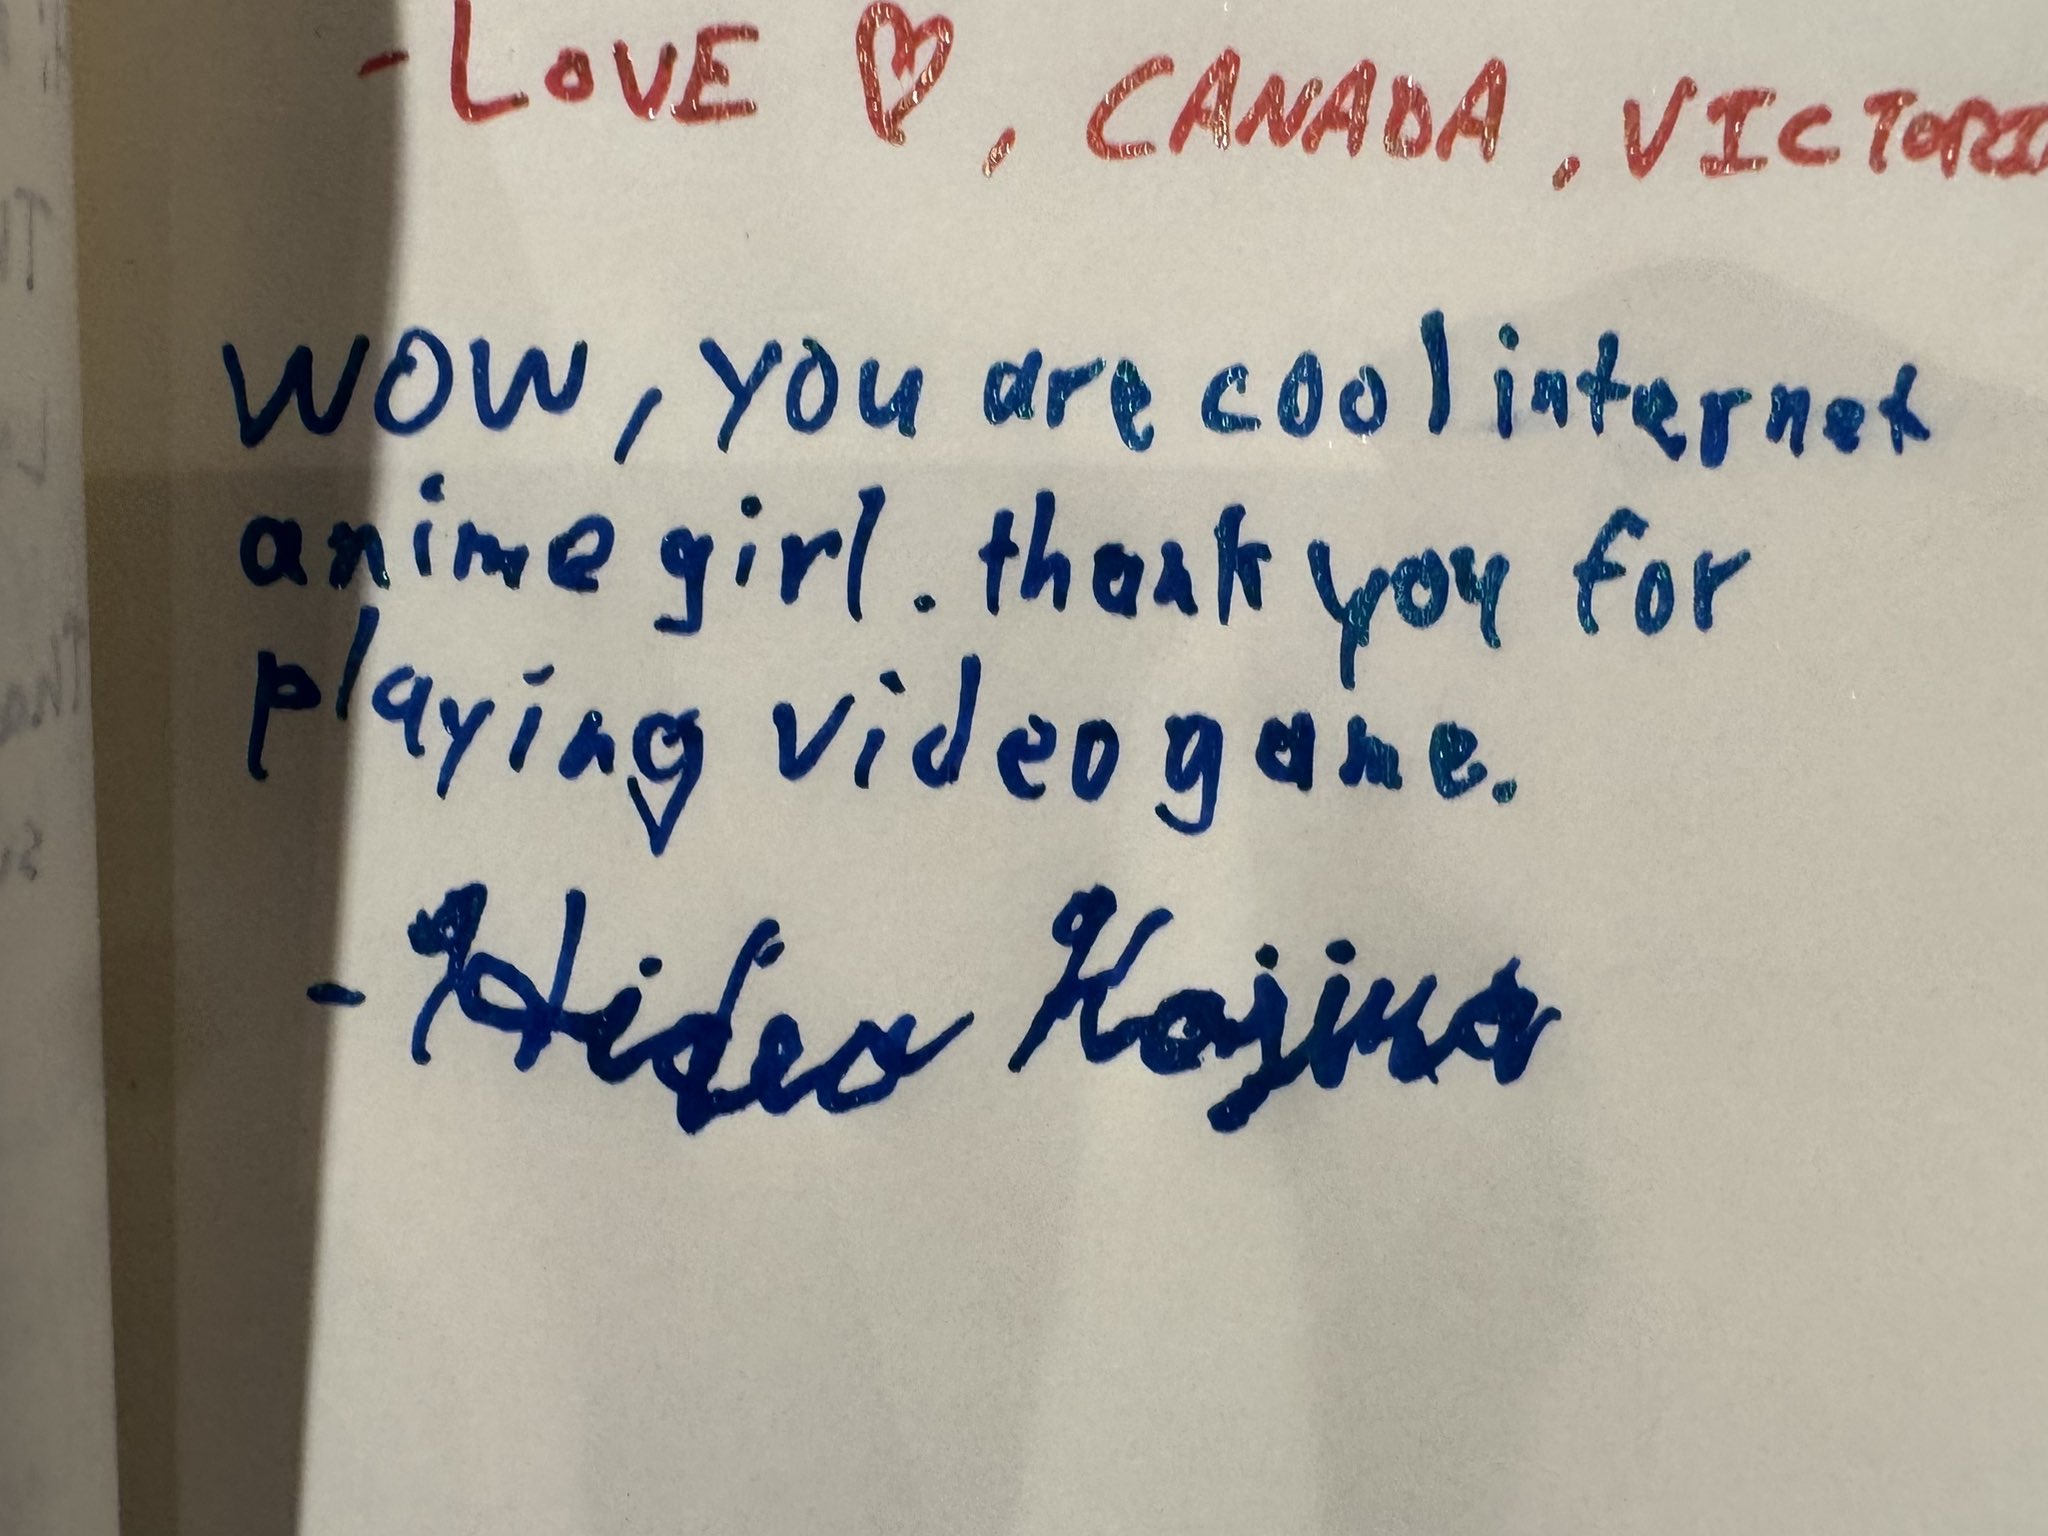 - LOVE ♡, CANADA, VICTORI
WOW, you are cool internet
anime girl. thank you for
playing video game.
- Hideo Kojima